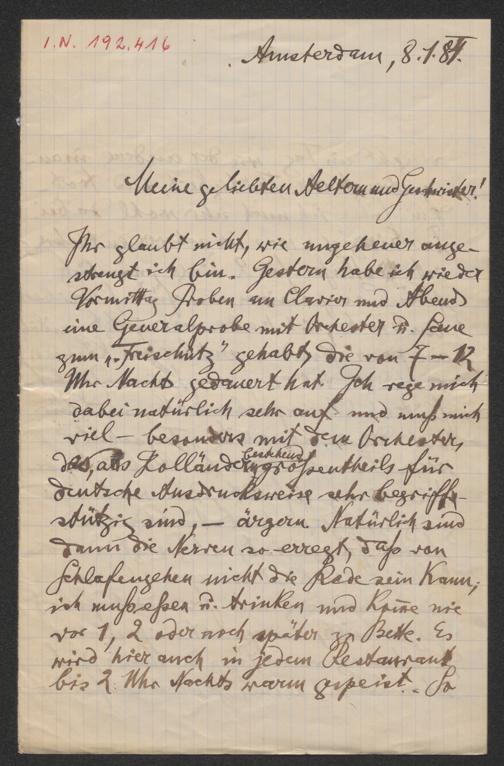 I.N. 192.416
Amsterdam, 8.1.87.
Meine geliebten Aeltern und Geschwister!
Ihr glaubt nicht, wie ungeheuer ange-
strengt ich bin. Gestern habe ich wieder
Vormittag Proben am Clavier und Abends
eine Generalprobe mit Orchester u. Scene
zum „Freischütz" gehabt, die von 7 – 12
Uhr Nachts gedauert hat. Ich rege mich
dabei natürlich sehr auf und muß mich
viel – besonders mit dem Orchester,
das, aus Holländern bestehend, großentheils für
deutsche Ausdrucksweise sehr begriffs-
stützig sind, – ärgern. Natürlich sind
dann die Nerven so erregt, daß von
Schlafengehen nicht die Rede sein kann;
ich muß essen u. trinken und komme nie
vor 1, 2 oder noch später zu Bette. Es
wird hier auch in jedem Restaurant
bis 2 Uhr Nachts warm gespeist. So